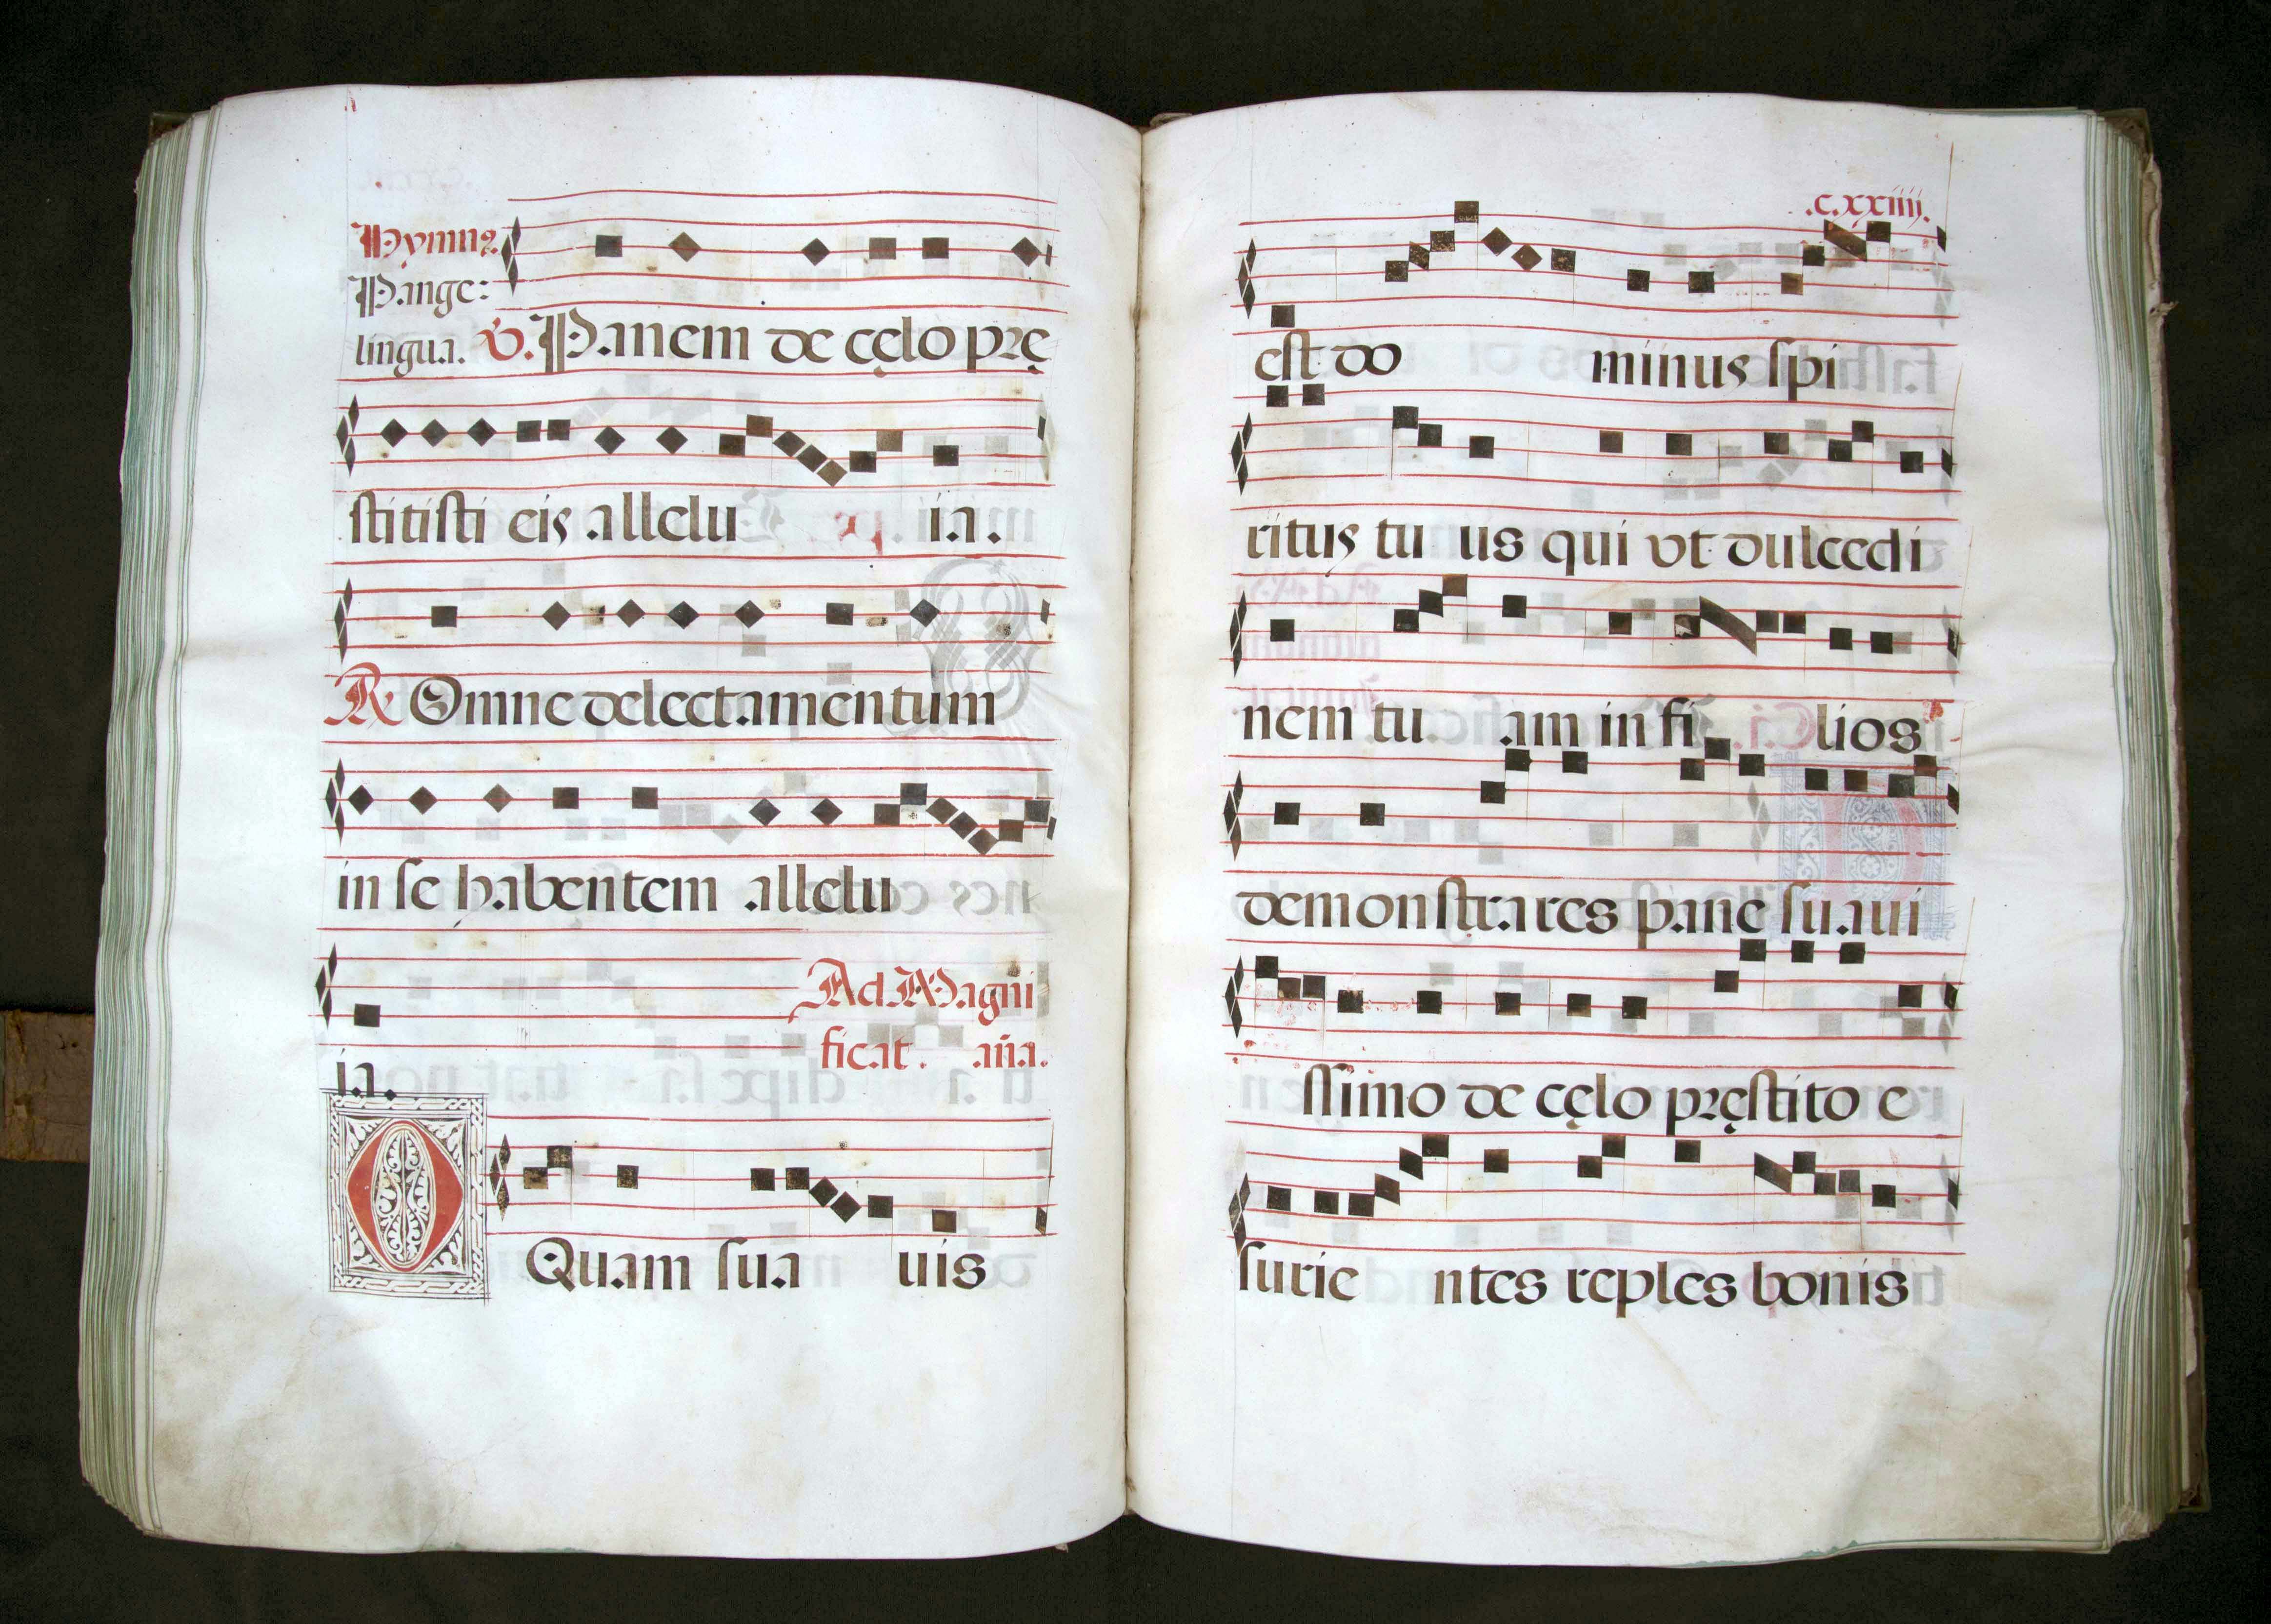 Hymnꝰ.
Pange:
lingua. V. Panem de cęlo prę
stitisti eis allelu ia.
R Omne delectamentum
in se habentem allelu
Ad Magni
ficat. aña.
ia.
O Quam sua uis
.c.xxiiij.
est do minus spi
ritus tu us qui vt dulcedi
nem tu am in fi lios
demonstrares pane suaui
ssimo de cęlo pręstito e
surie ntes reples bonis